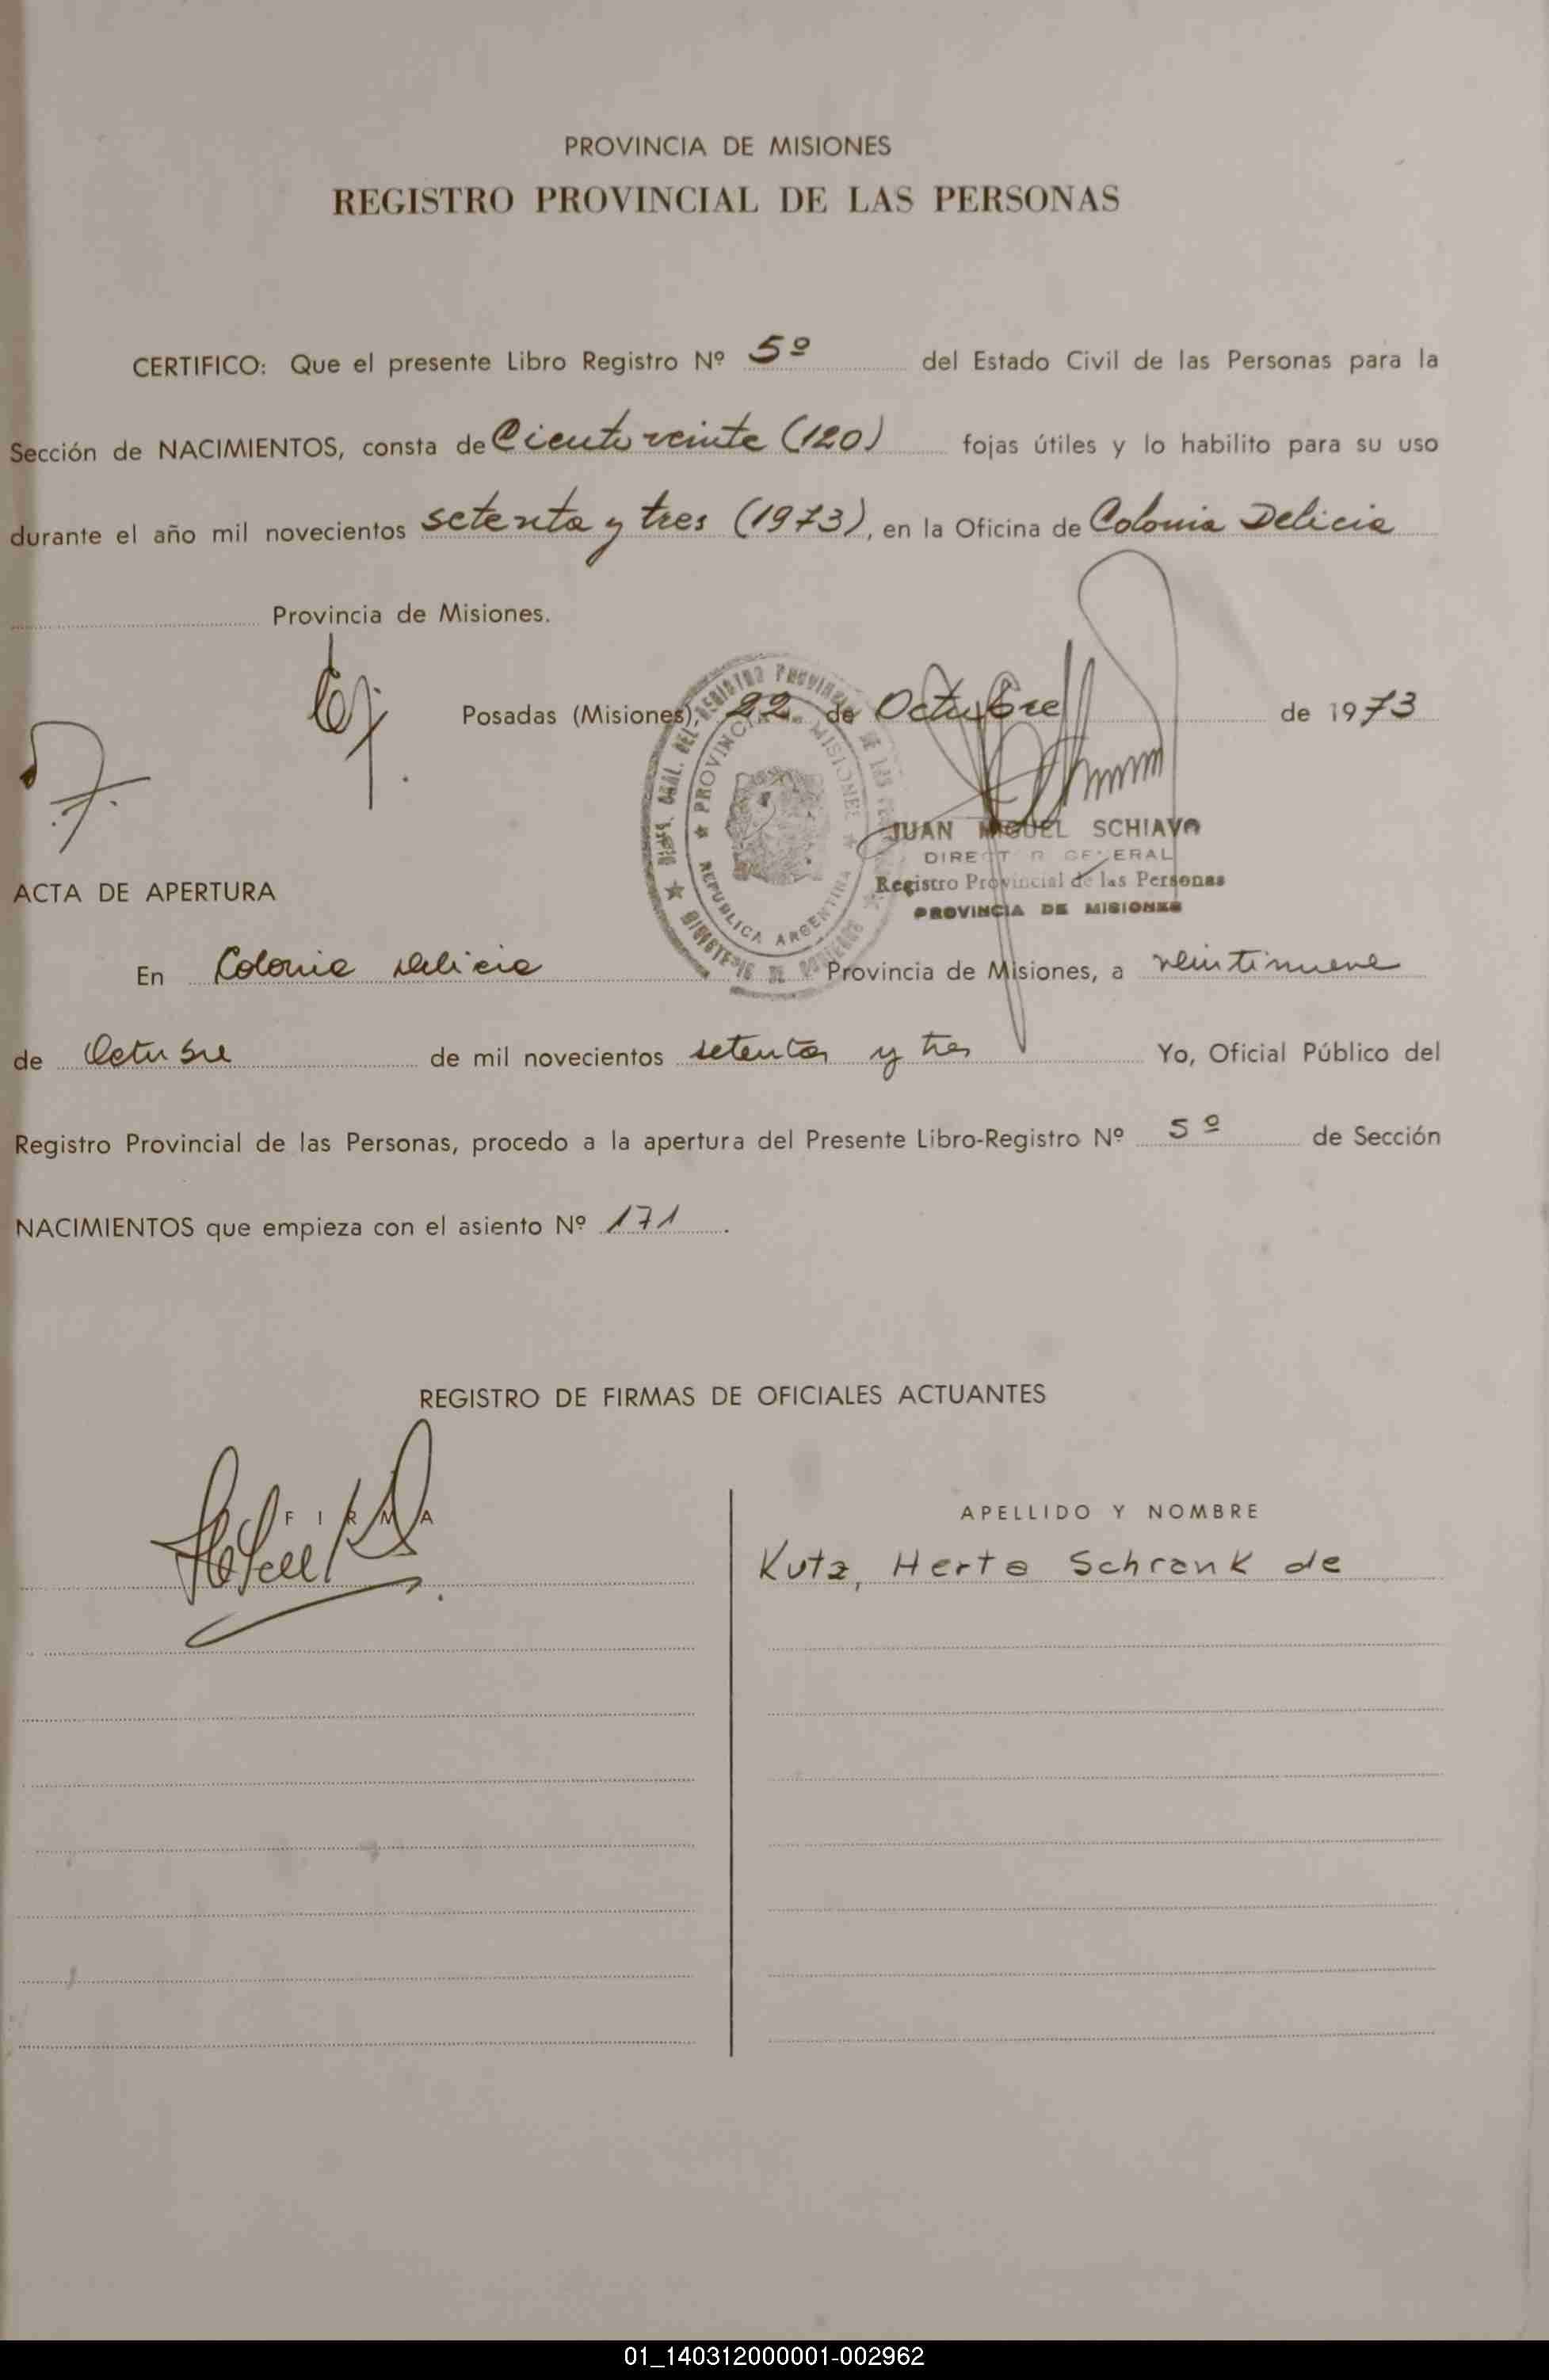 PROVINCIA DE MISIONES
REGISTRO PROVINCIAL DE LAS PERSONAS
CERTIFICO: Que el presente Libro Registro Nº 5º del Estado Civil de las Personas para la
Sección de NACIMIENTOS, consta de Ciento veinte (120) fojas útiles y lo habilito para su uso
durante el año mil novecientos setenta y tres (1973), en la Oficina de Colonia Delicia
Provincia de Misiones.
Posadas (Misiones), 22 de Octubre de 1973
JUAN MIGUEL SCHIAVO
DIRECTOR GENERAL
Registro Provincial de las Personas
PROVINCIA DE MISIONES
PROVINCIA DE MISIONES
REPUBLICA ARGENTINA
ACTA DE APERTURA
En Colonia Delicia Provincia de Misiones, a veintinueve
de Octubre de mil novecientos setenta y tres Yo, Oficial Público del
Registro Provincial de las Personas, procedo a la apertura del Presente Libro-Registro Nº 5º de Sección
NACIMIENTOS que empieza con el asiento Nº 171.
REGISTRO DE FIRMAS DE OFICIALES ACTUANTES
FIRMA
APELLIDO Y NOMBRE
Kutz, Herta Schrank de
01_140312000001-002962